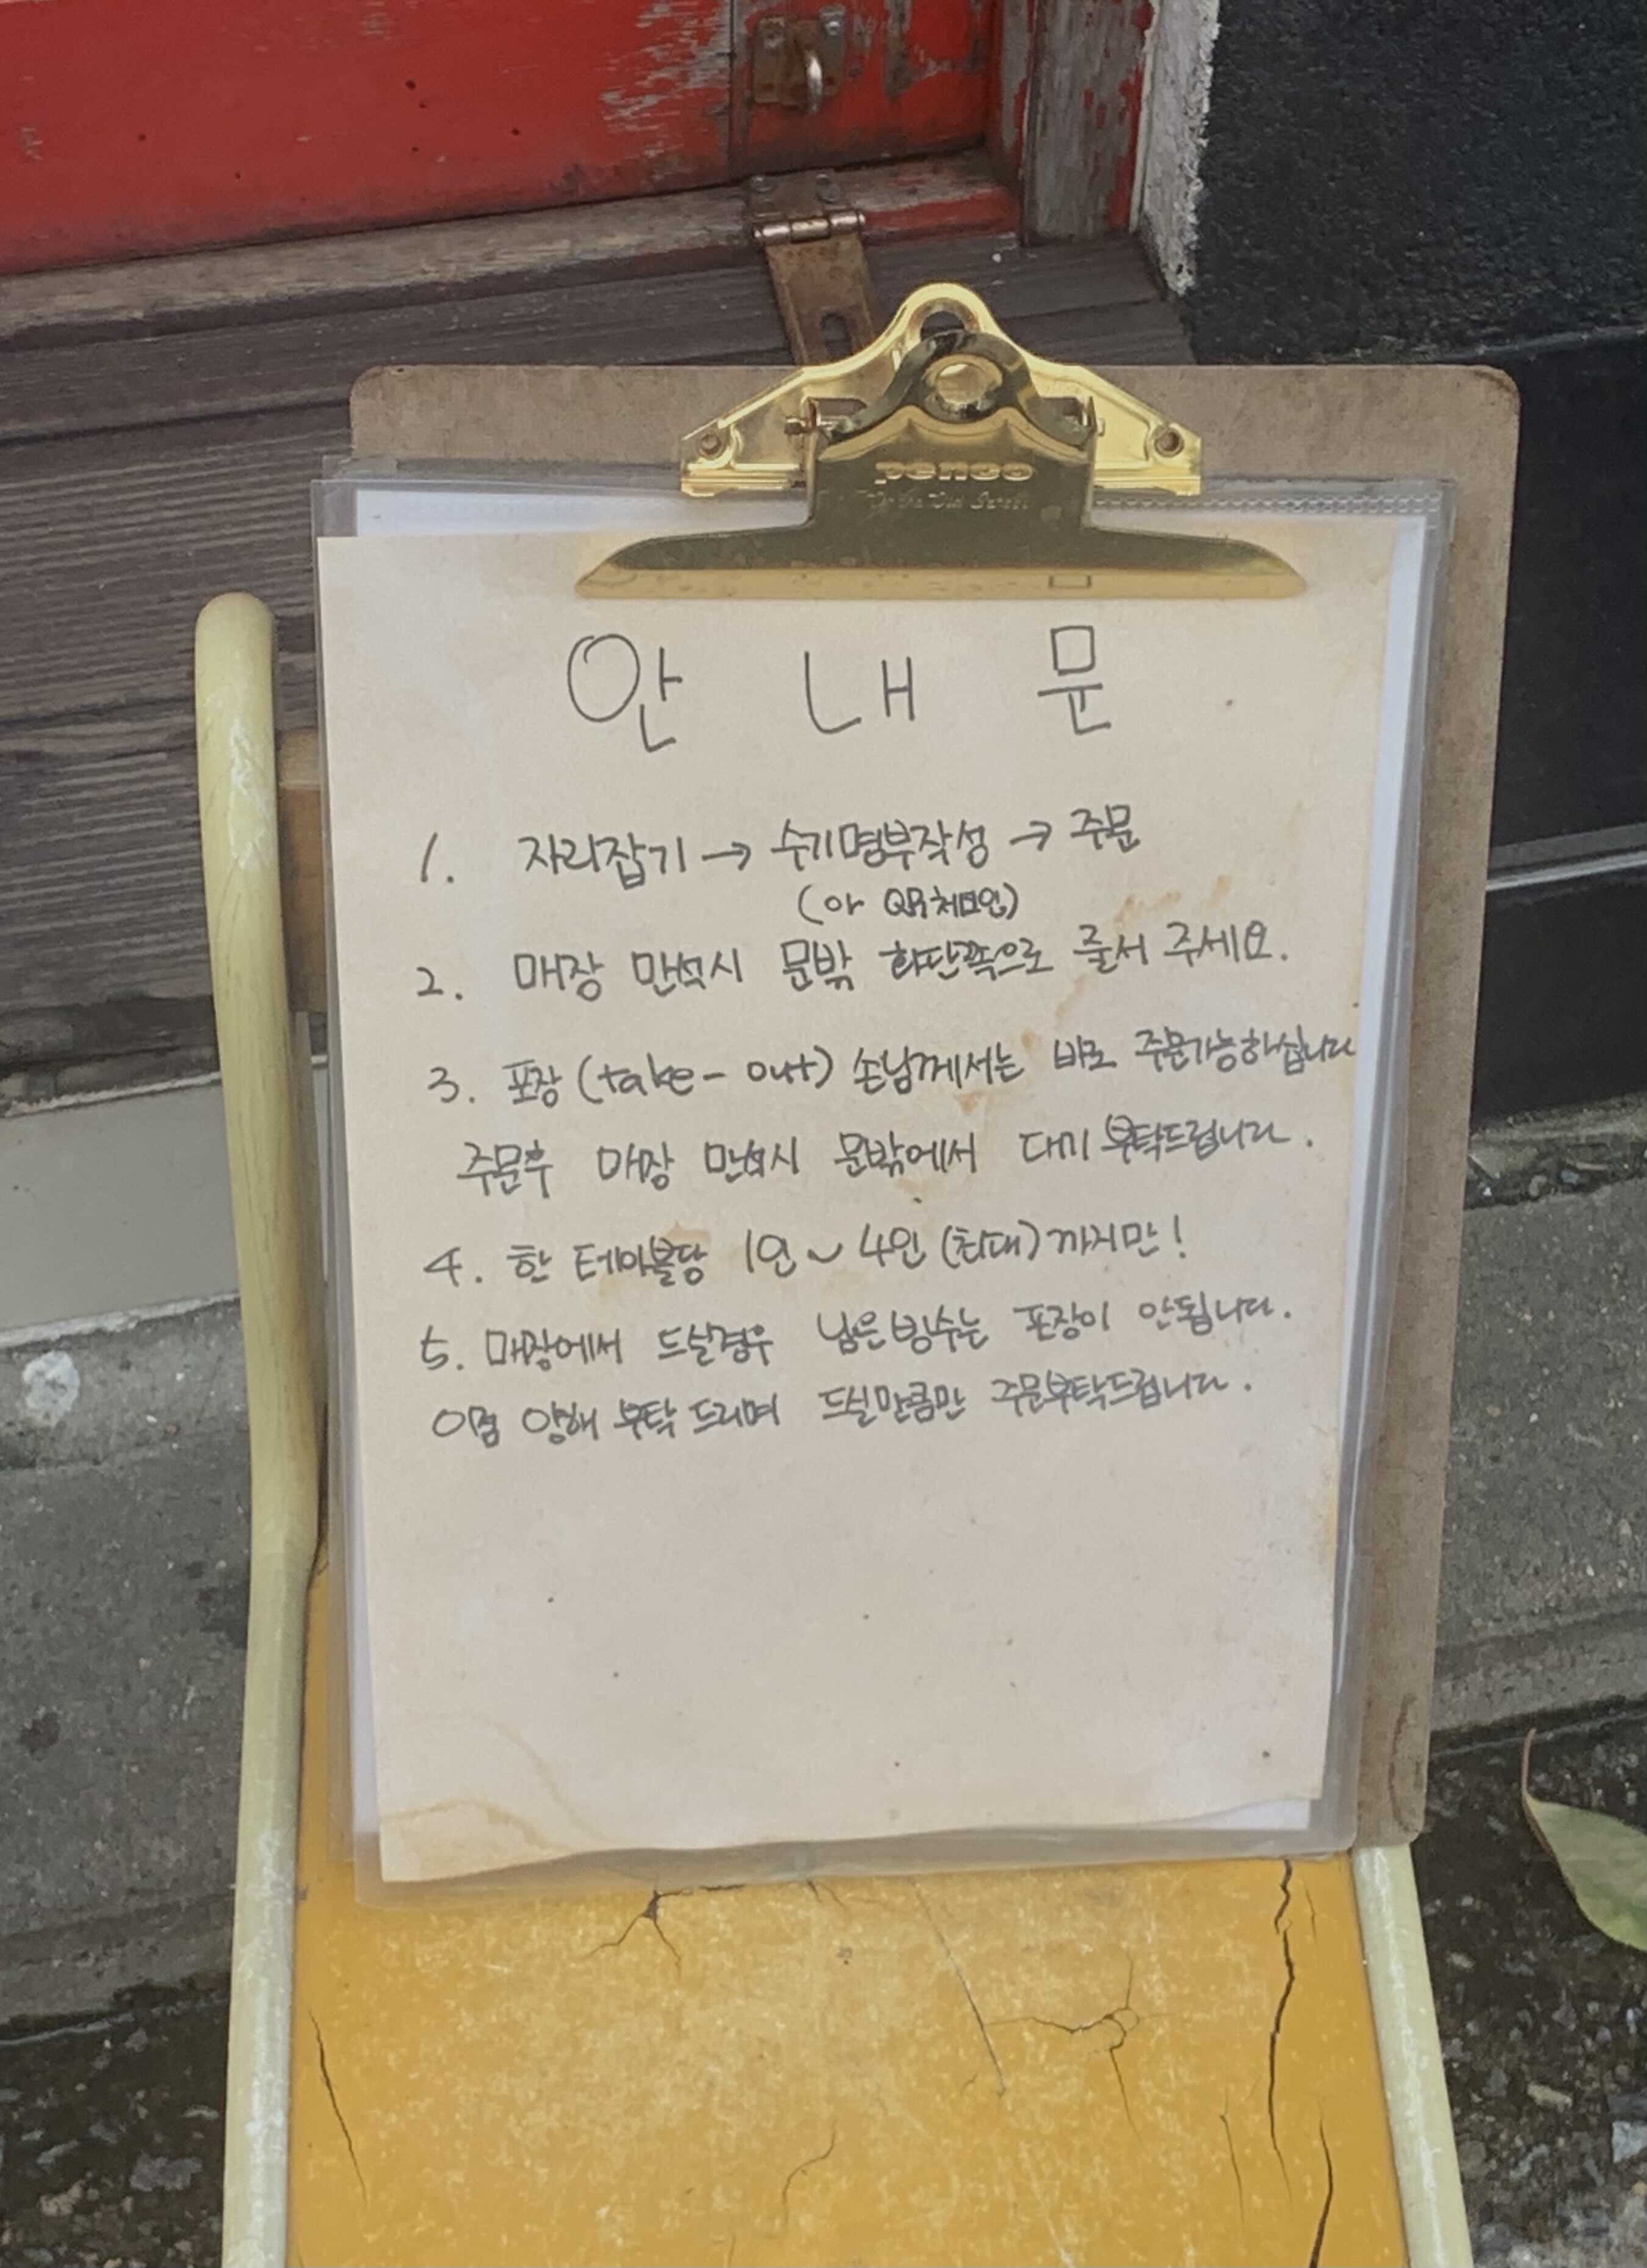 penco
안 내 문
1. 자리잡기 → 수기명부작성 → 주문
(or QR체크인)
2. 매장 만석시 문밖 화단쪽으로 줄서 주세요.
3. 포장(take-out) 손님께서는 바로 주문가능하십니다
주문후 매장 만석시 문밖에서 대기 부탁드립니다.
4. 한 테이블당 1인~4인(최대)까지만!
5. 매장에서 드실경우 남은빙수는 포장이 안됩니다.
이점 양해 부탁드리며 드실만큼만 주문부탁드립니다.